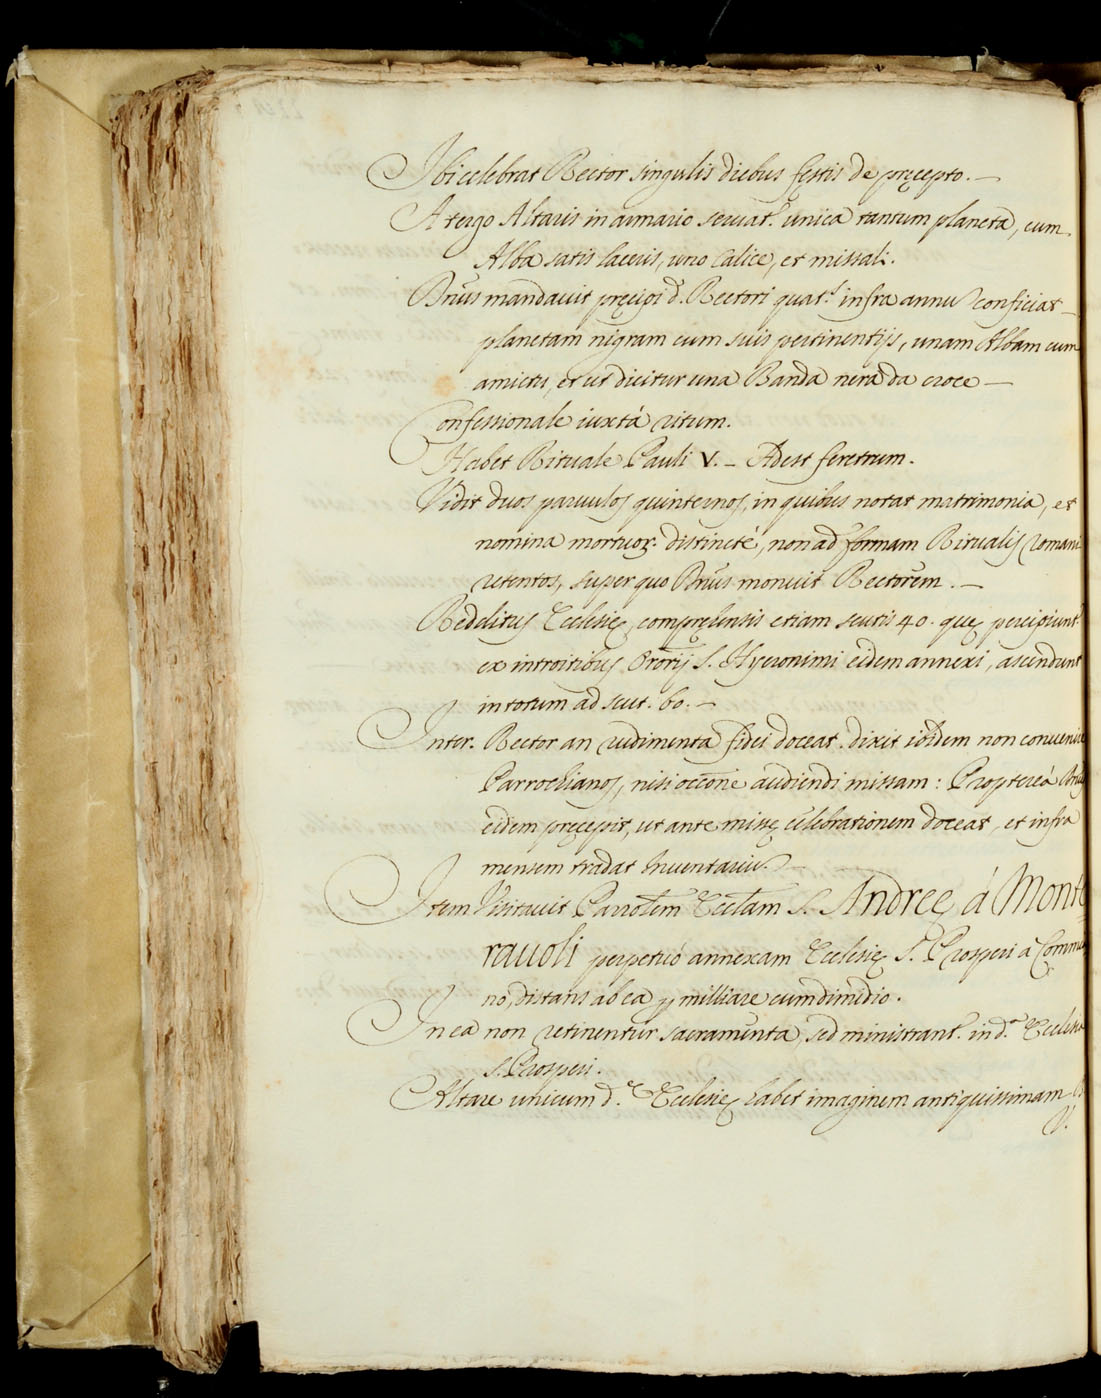 Ibi celebrat Rector singulis diebus festis de pręcepto. —
A tergo Altaris in armario seruat.r unica tantum planeta, cum
Alba satis laceris, uno Calice, et missali.
Brũs mandauit pręcipi d. Rectori quat.s infra annũ conficiat
planetam nigram cum suis pertinentijs, unam Albam cum
amictu, et ut dicitur una Banda nera da croce —
Confessionale iuxtà ritum.
Habet Rituale Pauli V. – Adest feretrum.
Vidit duos paruulos quinternos, in quibus notat matrimonia, et
nomina mortuor: distincté, non ad formam Ritualis romani
retentos, super quo Brũs monuit Rectorem. —
Redditus Ecclesię, compręhensis etiam scutis 40. quę percipiunt.r
ex introitibus Orõrij S. Hyeronimi eidem annexi, ascendunt
in totum ad scut. 60. —
Inter. Rector an rudimenta fidei doceat. dixit ibidem non conuenire
Parrochianos, nisi occõne audiendi missam: Proptereà Brũs
eidem pręcepit, ut ante missę celebrationem doceat, et infra
mensem tradat Inuentariũ. —
Item Visitauit Parrolem Ecclam S. Andreę à Monte
rauoli perpetuò annexam Ecclesię S. Prosperi à
no, distans ab ea p milliare cum dimidio.
In ea non retinentur sacramenta, sed ministrant.r in d.a Ecclesia
S. Prosperi.
Altare unicum d.ę Ecclesię habet imaginem antiquissimam B.
V.